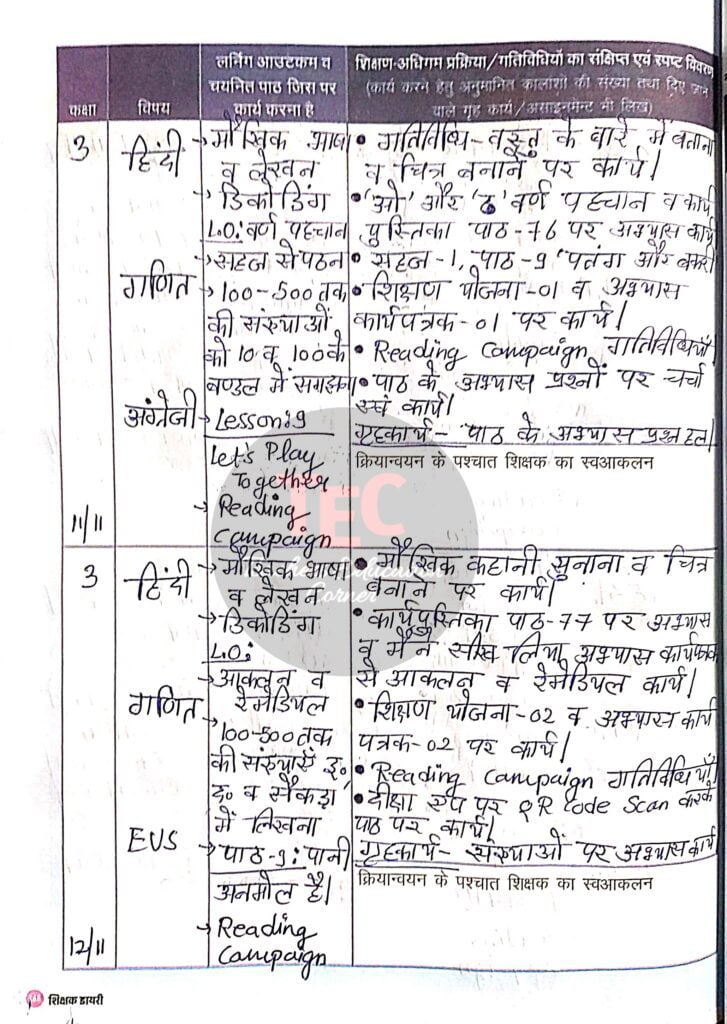 कक्षा
विषय
लर्निंग आउटकम व
चयनित पाठ जिस पर
कार्य करना है
शिक्षण-अधिगम प्रक्रिया/गतिविधियों का संक्षिप्त एवं स्पष्ट विवरण
(कार्य करने हेतु अनुमानित कालांशो की संख्या तथा दिए जाने
वाले गृह कार्य/असाइनमेन्ट भी लिखें)
3
11/11
हिंदी
गणित
अंग्रेजी
→ मौखिक भाषा
व लेखन
→ डिकोडिंग
L.O: वर्ण पहचान
→ सहज से पठन
→ 100-500 तक
की संख्याओं
को 10 व 100 के
बण्डल में समझना
→ Lesson: 9
Let's Play
Together
→ Reading
Campaign
• गतिविधि - वस्तु के बारे में बताना
व चित्र बनाने पर कार्य।
• 'ओ' और 'ढ' वर्ण पहचान व कार्य
पुस्तिका पाठ-76 पर अभ्यास कार्य
• सहज-1, पाठ-9 'पतंग और बकरी
• शिक्षण योजना-01 व अभ्यास
कार्यपत्रक-01 पर कार्य।
• Reading Campaign गतिविधियाँ।
• पाठ के अभ्यास प्रश्नों पर चर्चा
एवं कार्य।
गृहकार्य- पाठ के अभ्यास प्रश्न हल।
क्रियान्वयन के पश्चात शिक्षक का स्वआकलन
3
12/11
हिंदी
गणित
EVS
→ मौखिक भाषा
व लेखन
→ डिकोडिंग
L.O:
→ आकलन व
रेमेडियल
→ 100-500 तक
की संख्याएँ इ०,
द० व सैकड़ा
में लिखना
→ पाठ-9: पानी
अनमोल है।
→ Reading
Campaign
• मौखिक कहानी सुनाना व चित्र
बनाने पर कार्य।
• कार्यपुस्तिका पाठ-77 पर अभ्यास
व मैंने सीख लिया अभ्यास कार्यपत्रक
से आकलन व रेमेडियल कार्य।
• शिक्षण योजना-02 व अभ्यास कार्य
पत्रक-02 पर कार्य।
• Reading Campaign गतिविधियाँ।
• दीक्षा एप पर QR Code Scan करके
पाठ पर कार्य।
गृहकार्य- संख्याओं पर अभ्यास कार्य
क्रियान्वयन के पश्चात शिक्षक का स्वआकलन
TEC
Corner
शिक्षक डायरी